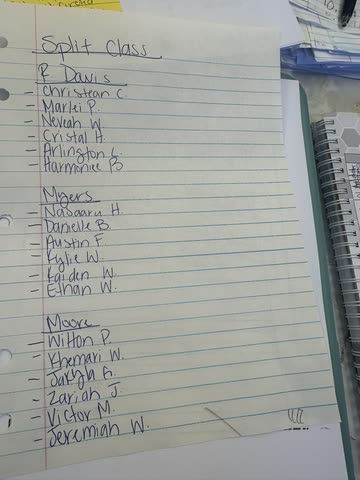 Split Class
R Davis
- Christean C.
- Marlei P.
- Neveah W.
- Cristal H.
- Arlington L.
- Harmonee B
Myers
- Nasaaru H.
- Danielle B.
- Austin F
- Kylie W.
- Kaiden W.
- Ethan W.
Moore
- Wilton P.
- Khemari W.
- Zariah J.
- Victor M.
- Jeremiah W.